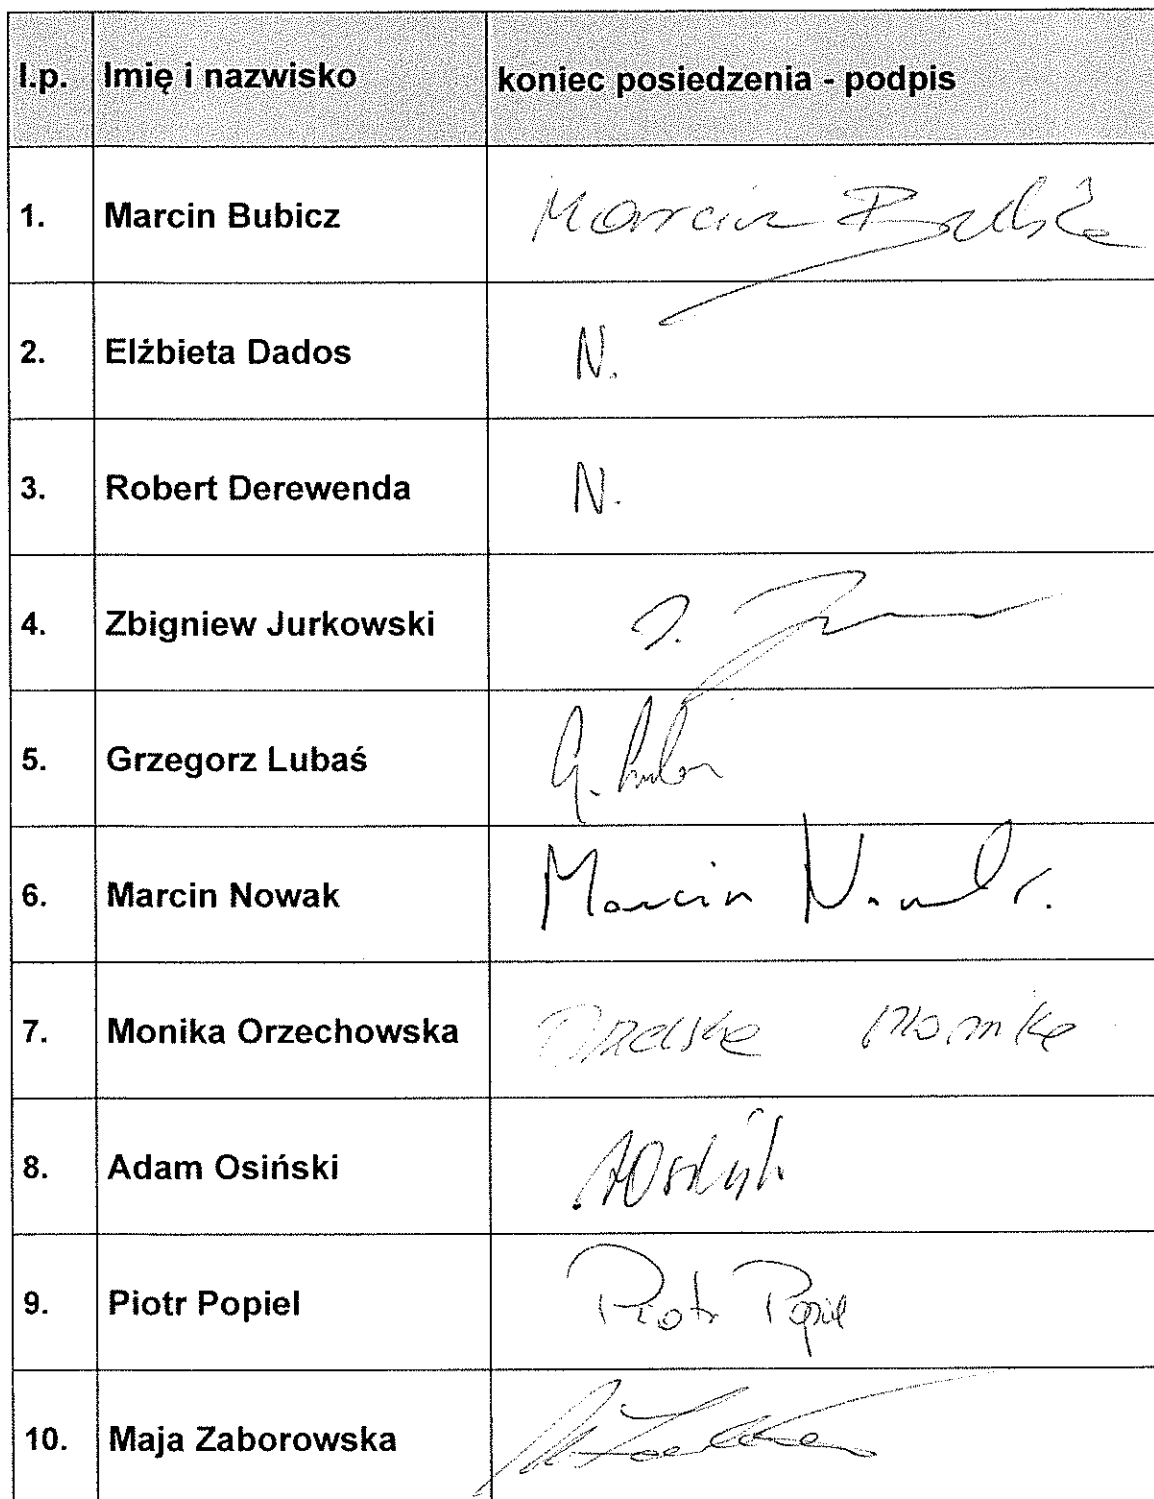 l.p. Imię i nazwisko koniec posiedzenia - podpis
1. Marcin Bubicz Marcin Bubicz
2. Elżbieta Dados N.
3. Robert Derewenda N.
4. Zbigniew Jurkowski
5. Grzegorz Lubaś G.
6. Marcin Nowak Marcin Nowak
7. Monika Orzechowska Monika
8. Adam Osiński
9. Piotr Popiel Piotr Popiel
10. Maja Zaborowska